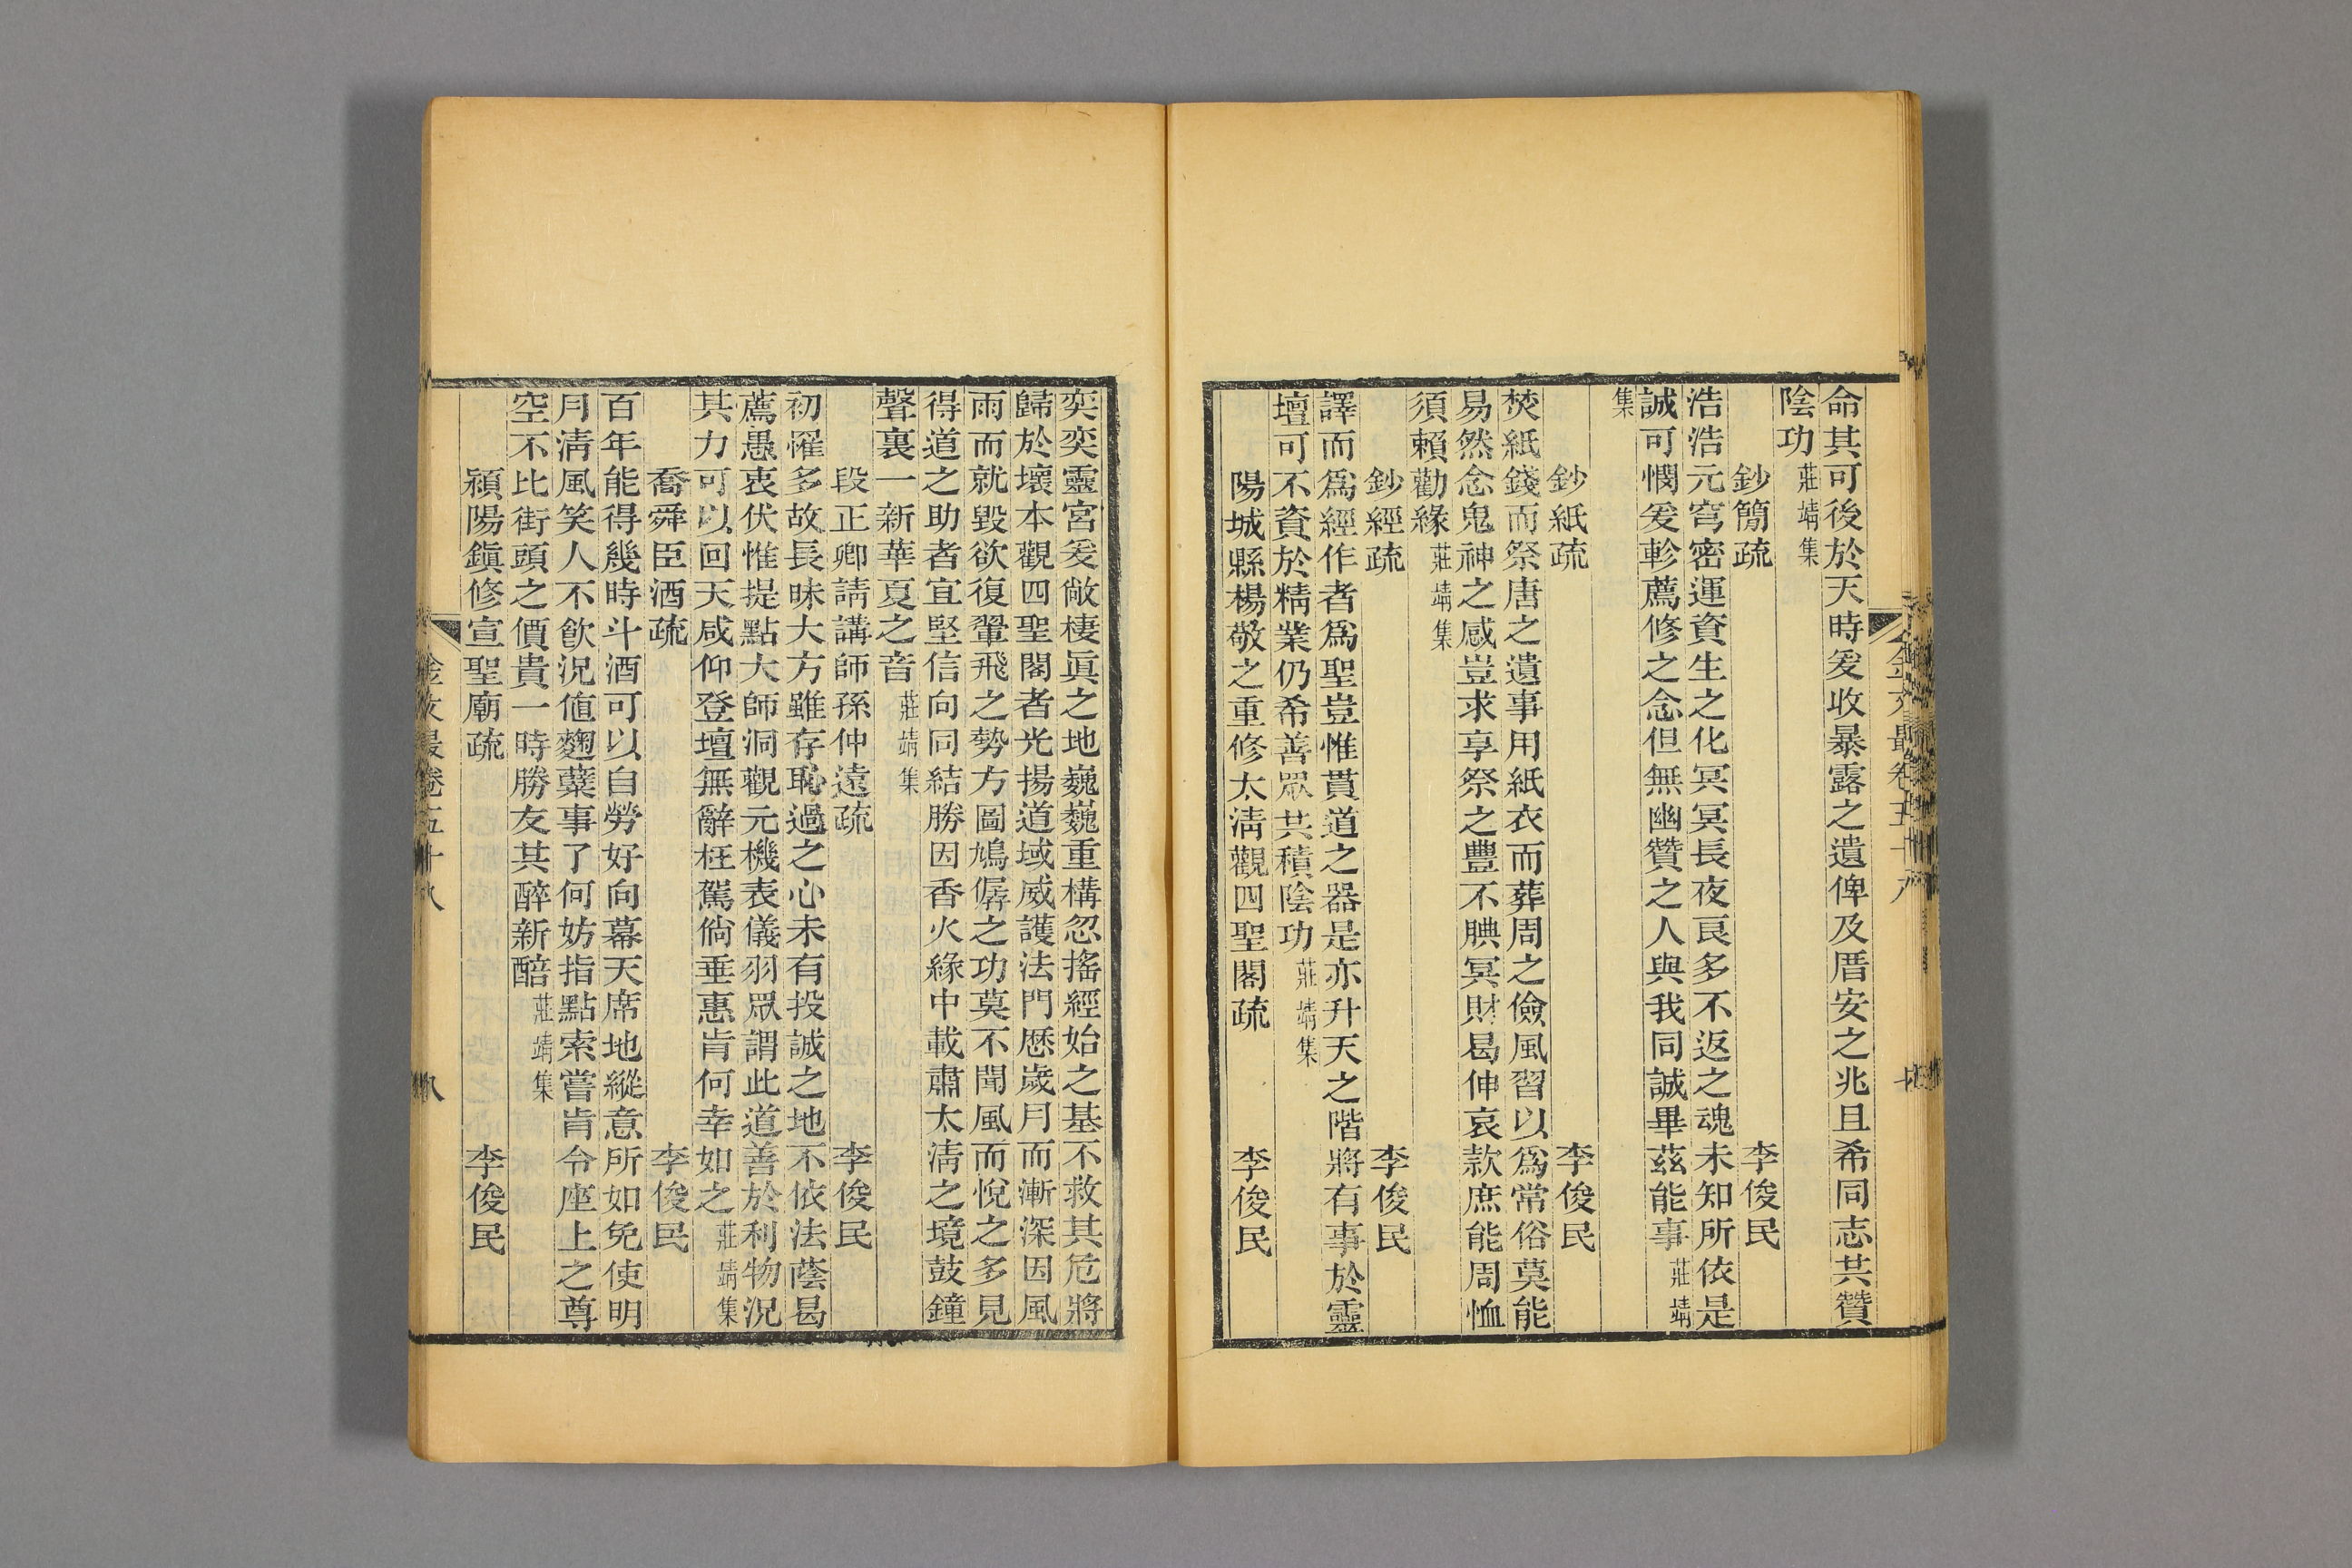 命其可後於天時爰收暴露之遺俾及厝安之兆且希同志共贊
陰功莊靖集
鈔簡疏　李俊民
浩浩元穹密運資生之化冥冥長夜良多不返之魂未知所依是
誠可憫爰軫薦修之念但無幽贊之人與我同誠畢茲能事莊靖
集
鈔紙疏　李俊民
焚紙錢而祭唐之遺事用紙衣而葬周之儉風習以爲常俗莫能
易然念鬼神之感豈求享祭之豐不腆冥財曷伸哀款庶能周恤
須賴勸緣莊靖集
鈔經疏　李俊民
譯而爲經作者爲聖豈惟貫道之器是亦升天之階將有事於靈
壇可不資於精業仍希善眾共積陰功莊靖集
陽城縣楊敬之重修太淸觀四聖閣疏　李俊民
金文最卷五十八　七
奕奕靈宮爰敞棲眞之地巍巍重構忍搖經始之基不救其危將
歸於壞本觀四聖閣者光揚道域威護法門歷歲月而漸深因風
雨而就毀欲復翬飛之勢方圖鳩僝之功莫不聞風而悅之多見
得道之助者宜堅信向同結勝因香火緣中載肅太淸之境鼓鐘
聲裏一新華夏之音莊靖集
段正卿請講師孫仲遠疏　李俊民
初罹多故長昧大方雖存恥過之心未有投誠之地不依法蔭曷
薦愚衷伏惟提點大師洞觀元機表儀羽眾謂此道善於利物況
其力可以回天咸仰登壇無辭枉駕倘垂惠肯何幸如之莊靖集
喬舜臣酒疏　李俊民
百年能得幾時斗酒可以自勞好向幕天席地縱意所如免使明
月淸風笑人不飮況値麴蘗事了何妨指點索嘗肯令座上之尊
空不比街頭之價貴一時勝友其醉新醅莊靖集
潁陽鎭修宣聖廟疏　李俊民
金文最卷五十八　八